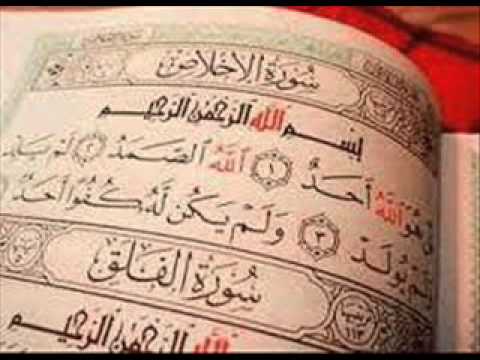 سُورَةُ الإِخْلَاصِ
بِسْمِ اللَّهِ الرَّحْمَنِ الرَّحِيمِ
هُوَ اللَّهُ أَحَدٌ ١ اللَّهُ الصَّمَدُ ٢ لَمْ يَلِدْ
وَلَمْ يُولَدْ ٣ وَلَمْ يَكُن لَّهُ كُفُوًا أَحَدٌ
سُورَةُ الفَلَقِ
١١٣
اللَّهِ الرَّحْمَنِ الرَّحِيمِ